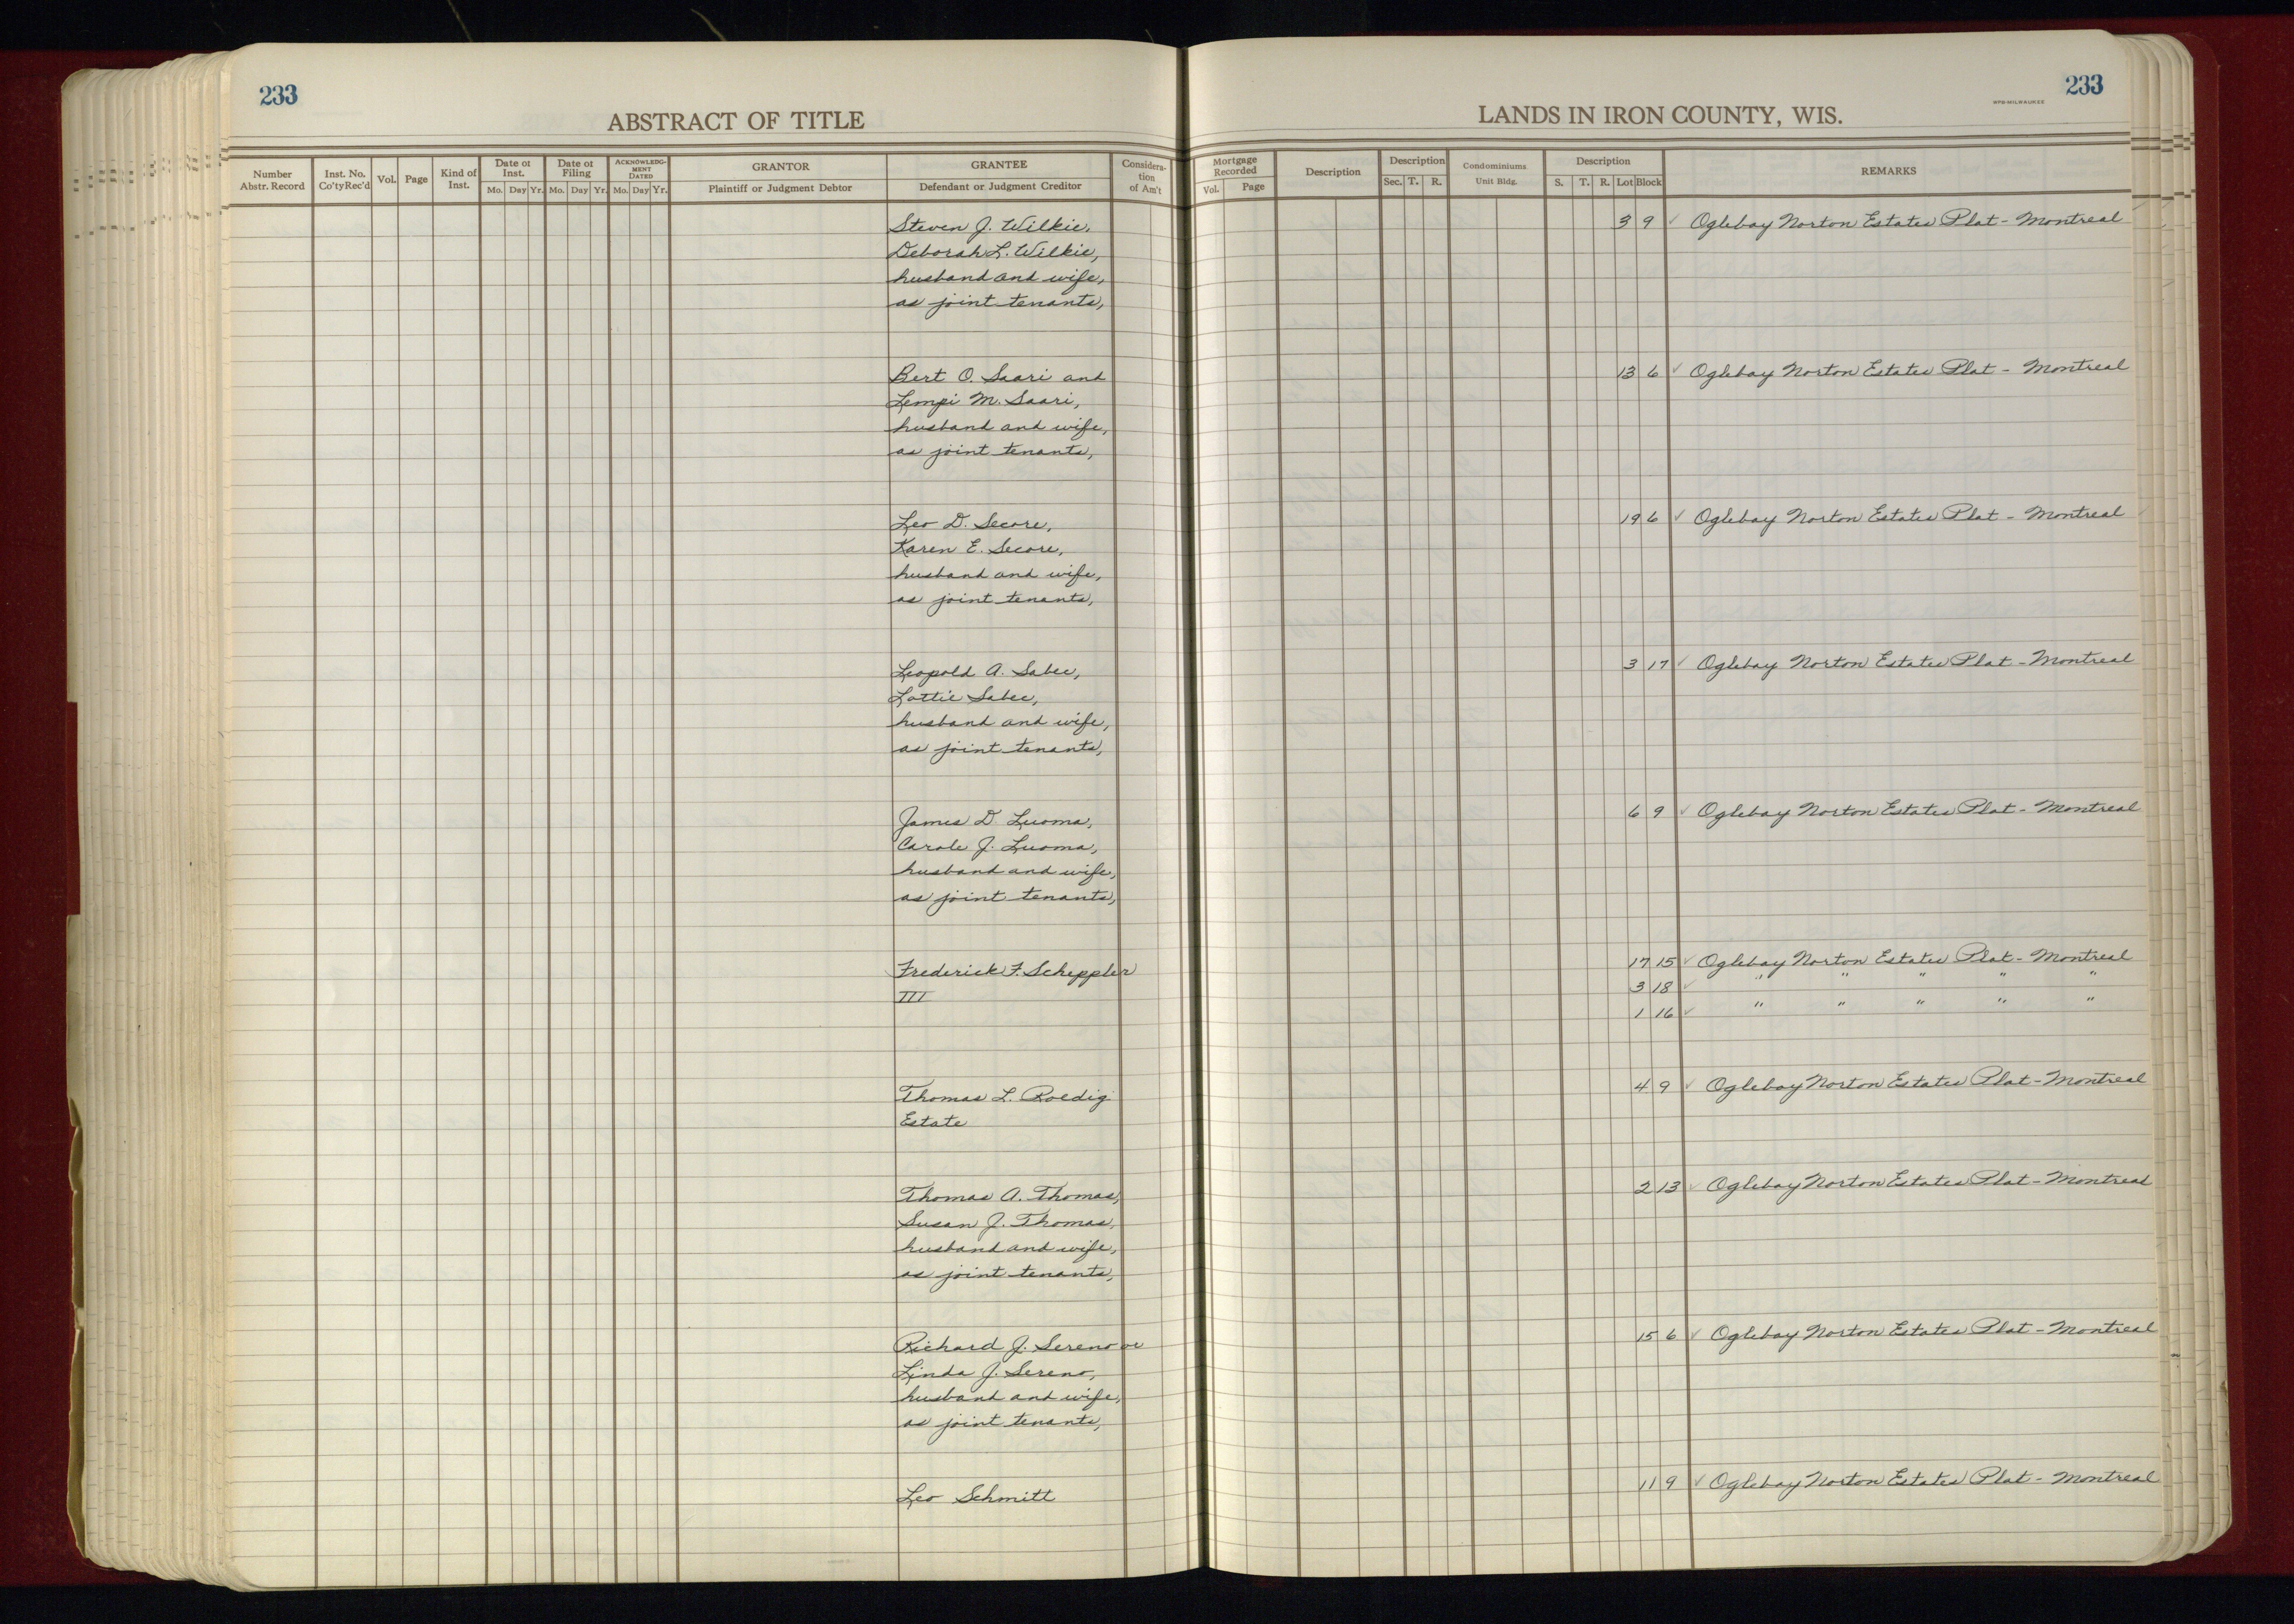 233
ABSTRACT OF TITLE
Number Abstr. Record
Inst. No. Co'ty Rec'd
Vol.
Page
Kind of Inst.
Date of Inst.
Mo. Day Yr.
Date of Filing
Mo. Day Yr.
ACKNOWLEDGMENT DATED
Mo. Day Yr.
GRANTOR
Plaintiff or Judgment Debtor
GRANTEE
Defendant or Judgment Creditor
Consideration of Am't
233
WPB-MILWAUKEE
LANDS IN IRON COUNTY, WIS.
Mortgage Recorded
Vol. Page
Description
Description
Sec. T. R.
Condominiums
Unit Bldg.
Description
S. T. R. Lot Block
REMARKS
Steven J. Wilkie, 3 9 ✓ Oglebay Norton Estates Plat - Montreal
Deborah L. Wilkie,
husband and wife,
as joint tenants,
Bert O. Saari and 13 6 ✓ Oglebay Norton Estates Plat - Montreal
Lempi M. Saari,
husband and wife,
as joint tenants,
Leo D. Secore, 19 6 ✓ Oglebay Norton Estates Plat - Montreal
Karen E. Secore,
husband and wife,
as joint tenants,
Leopold A. Sabec, 3 17 ✓ Oglebay Norton Estates Plat - Montreal
Lottie Sabec,
husband and wife,
as joint tenants,
James D. Luoma, 6 9 ✓ Oglebay Norton Estates Plat - Montreal
Carole J. Luoma,
husband and wife,
as joint tenants,
Frederick F. Scheppler 17 15 ✓ Oglebay Norton Estates Plat - Montreal
III 3 18 ✓ " " " " "
1 16 ✓ " " " " "
Thomas L. Roedig 4 9 ✓ Oglebay Norton Estates Plat - Montreal
Estate
Thomas A. Thomas, 2 13 ✓ Oglebay Norton Estates Plat - Montreal
Susan J. Thomas,
husband and wife,
as joint tenants,
Richard J. Sereno or 15 6 ✓ Oglebay Norton Estates Plat - Montreal
Linda J. Sereno,
husband and wife,
as joint tenants,
Leo Schmitt 11 9 ✓ Oglebay Norton Estates Plat - Montreal